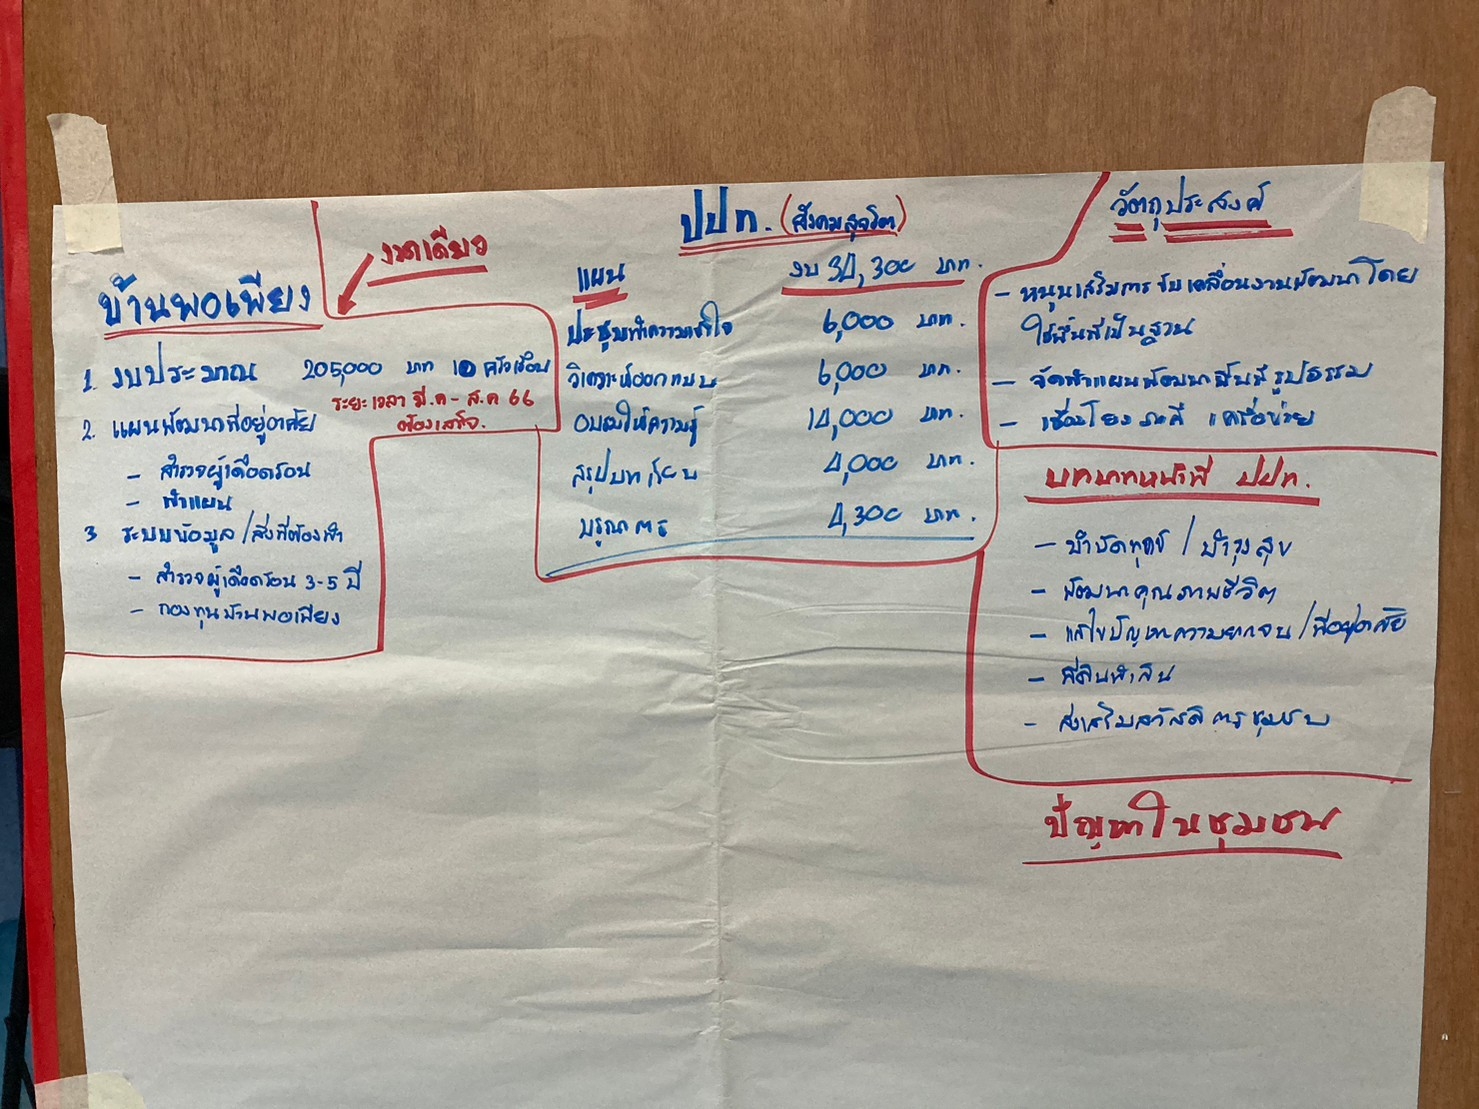 บ้านพอเพียง
งวดเดียว
1. งบประมาณ 205,000 บาท 10 ครัวเรือน
ระยะเวลา มี.ค - ส.ค 66
ต้องเสร็จ.
2. แผนพัฒนาที่อยู่อาศัย
- สำรวจผู้เดือดร้อน
- ทำแผน
3 ระบบข้อมูล/สิ่งที่ต้องทำ
- สำรวจผู้เดือดร้อน 3-5 ปี
- กองทุนบ้านพอเพียง
ปปท. (สังคมสุจริต)
แผน งบ 34,300 บาท.
ประชุมทำความเข้าใจ 6,000 บาท.
วิเคราะห์ออกแบบ 6,000 บาท.
อบรมให้ความรู้ 14,000 บาท.
สรุปบทเรียน 4,000 บาท.
บูรณาการ 4,300 บาท.
วัตถุประสงค์
- หนุนเสริมการขับเคลื่อนงานพัฒนาโดย
ใช้พื้นที่เป็นฐาน
- จัดทำแผนพัฒนาพื้นที่รูปธรรม
- เชื่อมโยงภาคี เครือข่าย
บทบาทหน้าที่ ปปท.
- บำบัดทุกข์ / บำรุงสุข
- พัฒนาคุณภาพชีวิต
- แก้ไขปัญหาความยากจน/ที่อยู่อาศัย
- ที่ดินทำกิน
- ส่งเสริมสวัสดิการชุมชน
ปัญหาในชุมชน